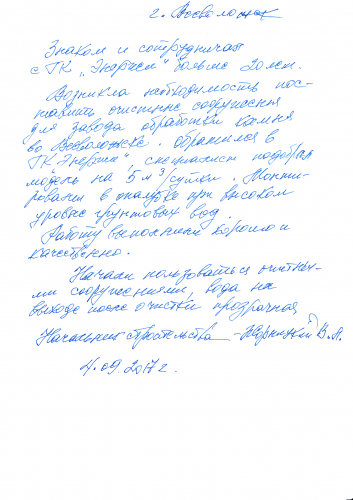 г. Всеволожск
Знаком и сотрудничал
с ГК „Энерчем" больше 20 лет.
Возникла необходимость пос-
тавить очистные сооружения
для завода обработки камня
во Всеволожске. обратился в
ГК „Энерчем", специалист подобрал
модель на 5 м³/сутки. Монти-
ровали в опалубке при высоком
уровне грунтовых вод.
Работу выполнили хорошо и
качественно.
Начали пользоваться очистны-
ми сооружениями, вода на
выходе после очистки прозрачная
Начальник строительства - В.А.
4.09.2017г.